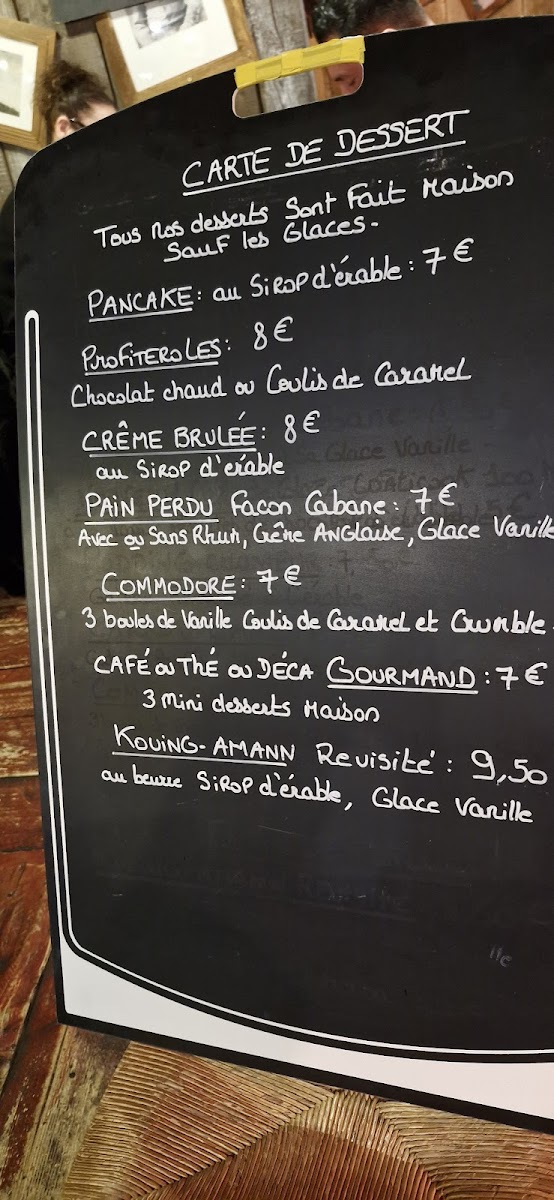 CARTE DE DESSERT
Tous nos desserts Sont Fait Maison
Sauf les Glaces.
PANCAKE: au Sirop d'érable: 7 €
ProFiteroLES: 8€
Chocolat chaud ou Coulis de Caramel
CRÊME BRULÉE: 8€
au Sirop d'érable
PAIN PERDU Facon Cabane: 7 €
Avec ou Sans Rhum, Crême Anglaise, Glace Vanille
COMMODORE: 7€
3 boules de Vanille Coulis de Caramel et Crumble.
CAFÉ ou Thé ou DÉCA GOURMAND: 7€
3 Mini desserts Maison
KOUING-AMANN Revisité: 9,50
au beurre Sirop d'érable, Glace Vanille